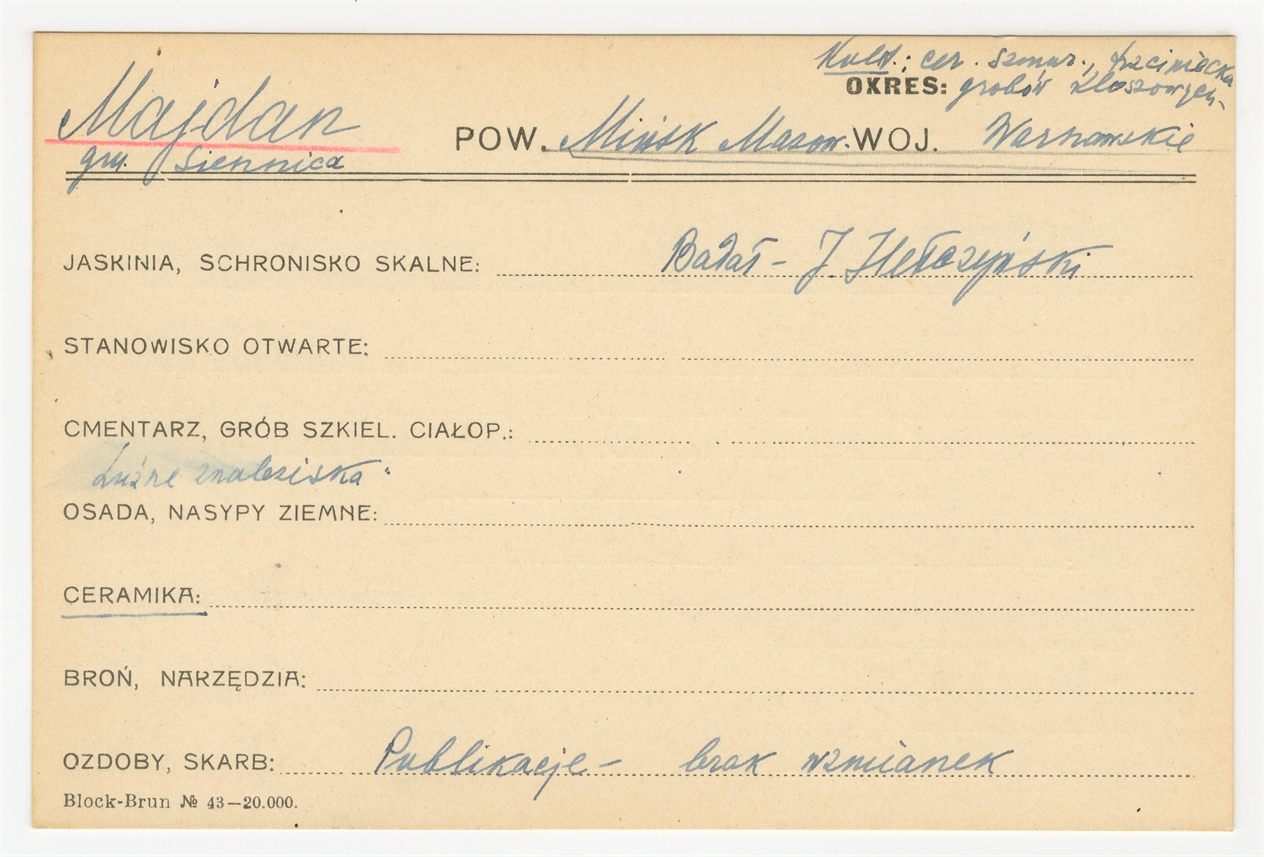 Kult.: cer. sznur., trzciniecka
OKRES: grobów kloszowych
Majdan
POW. Mińsk Mazow. WOJ. Warszawskie
gm. Siennica
JASKINIA, SCHRONISKO SKALNE: Badał - J.
STANOWISKO OTWARTE:
CMENTARZ, GRÓB SZKIEL. CIAŁOP.:
Luźne znaleziska
OSADA, NASYPY ZIEMNE:
CERAMIKA:
BROŃ, NARZĘDZIA:
OZDOBY, SKARB: Publikacje - brak wzmianek
Block-Brun № 43—20.000.